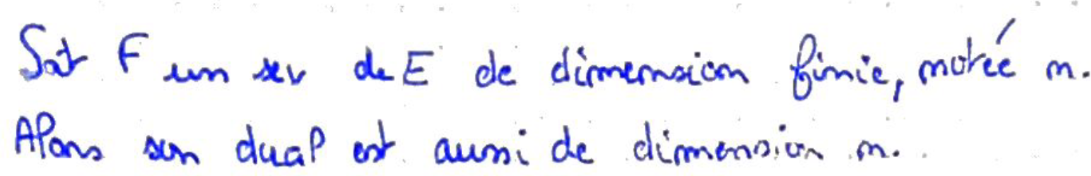 Soit F un sev de E de dimension finie, notée n.
Alors son dual est aussi de dimension n.